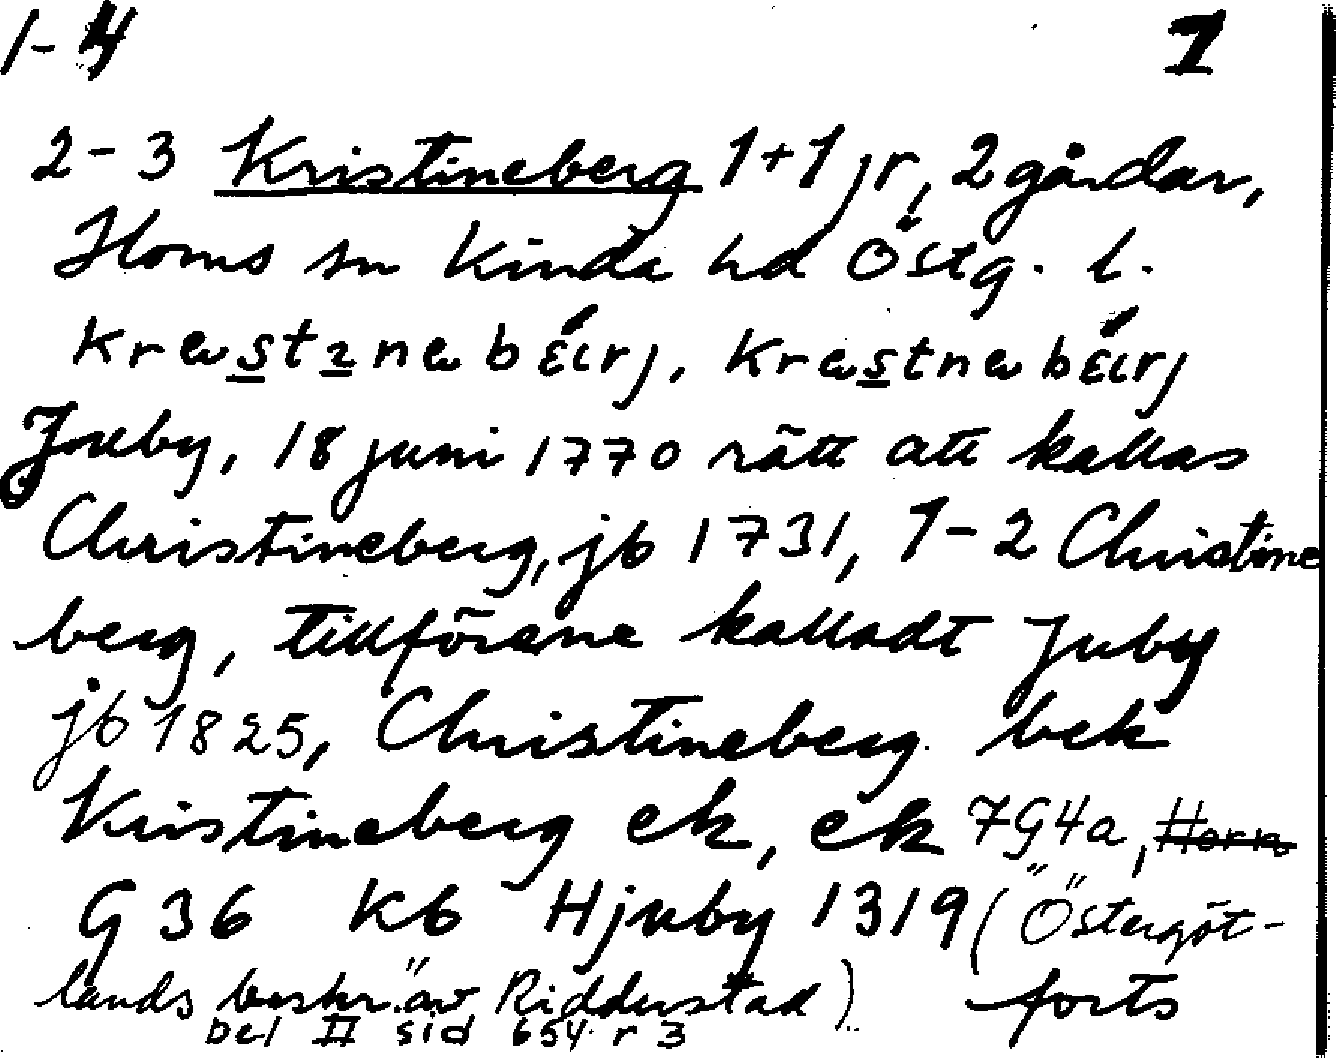 1-4 1
2-3 Kristineberg 1+1 jr, 2 gårdar,
Horns sn Kinda hd Östg. l.
Juby, 18 juni 1770 rätt att kallas
Christineberg, jb 1731, 1-2 Christine
berg, tillförene kalladt Juby
jb 1825, Christineberg bek
Kristineberg ek, ek 7G4a, Horn
G 36 K6 Hjuby 1319 (Östergöt-
lands beskr. av Ridderstad) forts
Del II sid 654 r 3